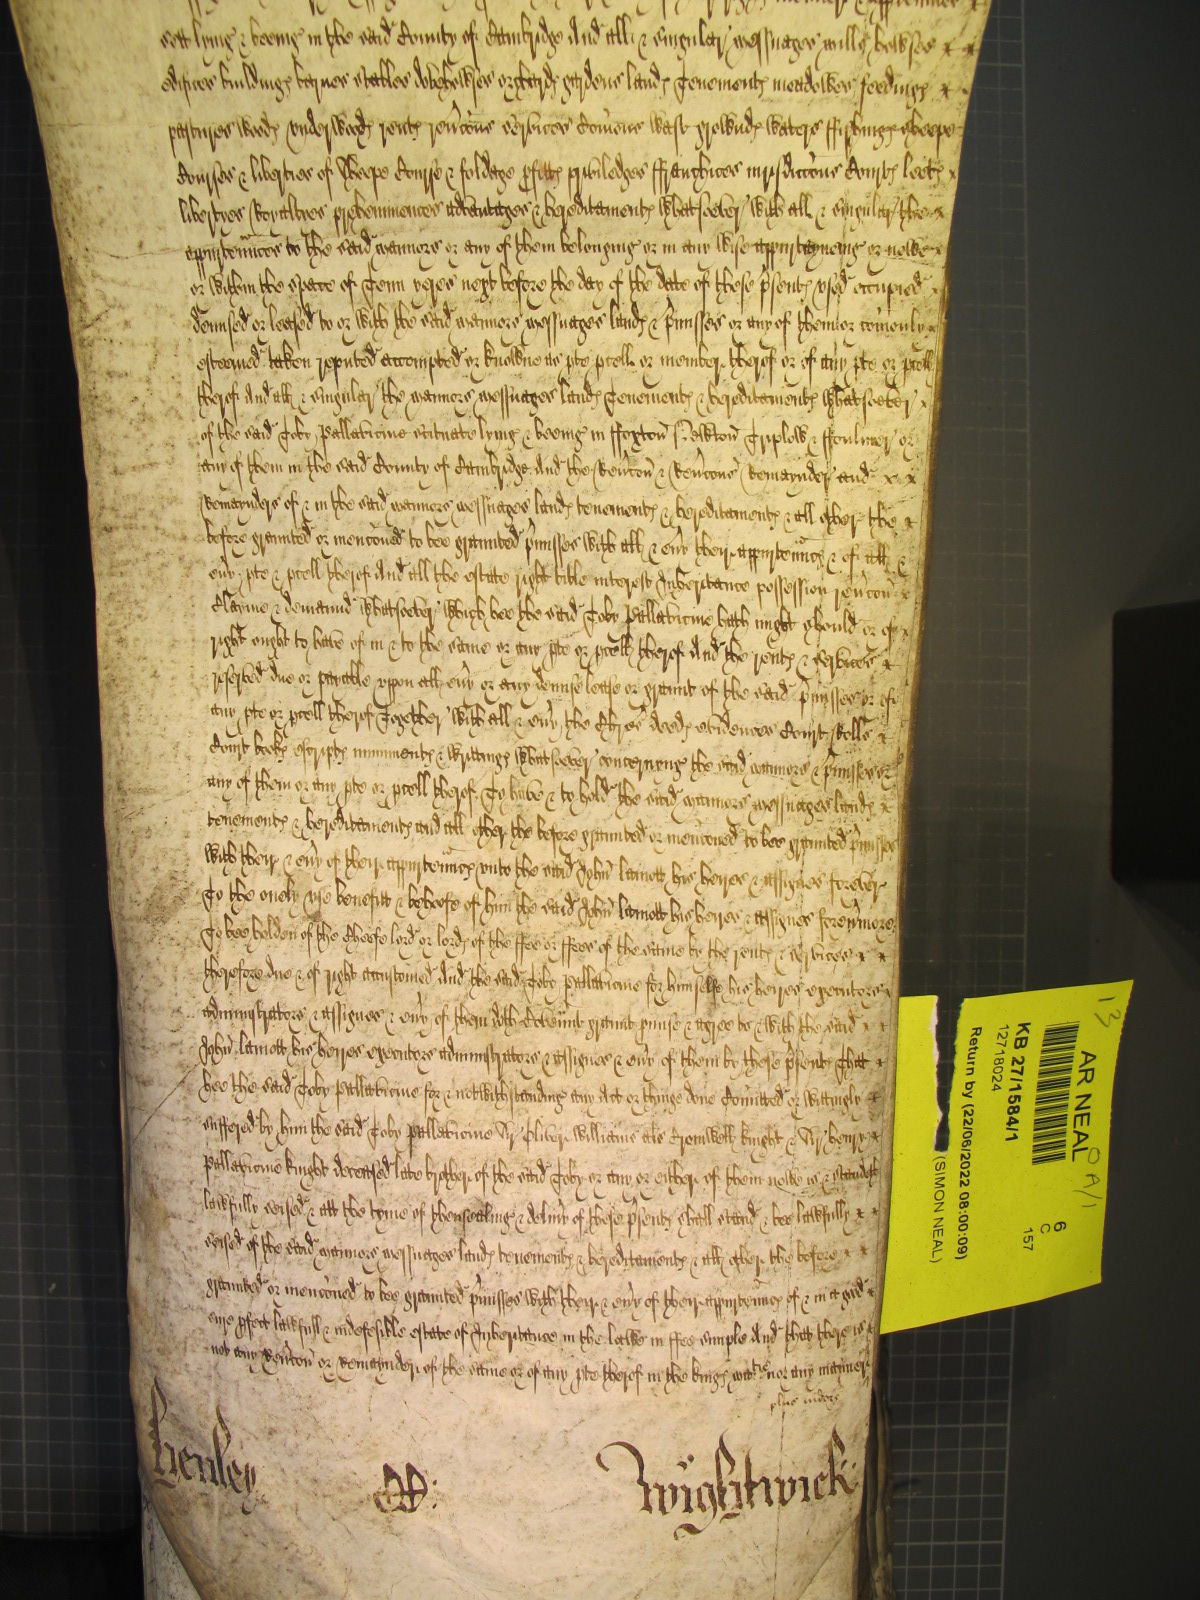 sett lyinge & beeing in the said County of Cambridge And all & singular messuages mills howses
edifices buildings barnes stables dovehowses orchards gardens lands Tenements meadowes feedings
pastures woods underwoods rents revercons services Comons wast grownds waters ffishings sheepe
Courses & liberties of Sheepe Course & foldage pfitts priviledges ffranchices jurisdiccons Courts leets
libertyes Royaltyes preheminences advantages & hereditaments whatsoever with all & singular the
appurtenncs to the said mannors or any of them belonging or in any wise appurtayneing or nowe
or within the space of Tenn yeres next before the day of the date of these psents used occupied
demised or leased to or with the said mannors messuages lands & pmisses or any of them or comonly
esteemed taken reputed accompted or knowne as pte pcell or member therof or of any pte or pcell
therof And all & singular the mannors messuages lands Tenements & hereditaments whatsoever
of the said Toby Pallavicine scituate lying & beeing in ffoxton Newton Triplow & ffoulmer or
any of them in the said County of Cambridge And the Revercon & Revercons Remaynder and
Remaynders of & in the said mannors messuages lands tenements & hereditaments & all other the
before graunted or mencoued to bee graunted pmisses with all & evry their appurtenncs & of all &
evry pte & pcell therof And all the estate right title interest Inheritance possession revercon
Clayme & demaund whatsoever which hee the said Toby Pallavicine hath might should or of
right ought to have of in & to the same or any pte or pcell therof And the rents & services
reserved due or payable uppon all evry or any demise lease or graunt of the said pmisses or of
any pte or pcell therof Together with all & evry the Chres deeds evidences Court Rolls
Court books escripts muniments & writtings whatsoever concerning the said mannors & pmisses or
any of them or any pte or pcell therof To have & to hold the said mannors messuages lands
tenements & hereditaments and all other the before graunted or mencoued to bee graunted pmisses
with their & evry of their appurtenncs unto the said John Lamott his heires & assignes forever
To the onely use benefitt & behoofe of him the said John Lamott his heires & assignes forevrmore
To bee holden of the Cheefe lord or lords of the ffee or ffees of the same by the rents & services
therefore due & of right accustomed And the said Toby Pallavicine for himselfe his heires executors
administrators & assignes & evry of them doth Covennt graunt pmise & agree to & with the said
John Lamott his heires executors administrators & assignes & evry of them by these psents That
hee the said Toby Pallavicine for & notwithstanding any Act or thinge done Comitted or wittingly
suffered by him the said Toby Pallavicine Sr Oliver Williams als Cromwell knight & Sr henry
Pallavicine knight deceased late brother of the said Toby or any or either of them nowe is & standeth
lawfully seised & att the tyme of thensealing & delivry of these psents shall stand & bee lawfully
seised of the said mannors messuages lands tenements & hereditaments & all other the before
graunted or mencoued to bee graunted pmisses with their & evry of their appurtenncs of & in a good
sure pfect lawfull & indefesible estate of Inheritance in the lawe in ffee simple And that there is
not any Revercon or Remaynder of the same or of any pte therof in the kings matie nor any manner
plus indors
henley
Wightwick
13
AR NEAL
KB 27/1584/1
12718024
Return by (22/06/2022 08:00:09)
(SIMON NEAL)
6
C
157